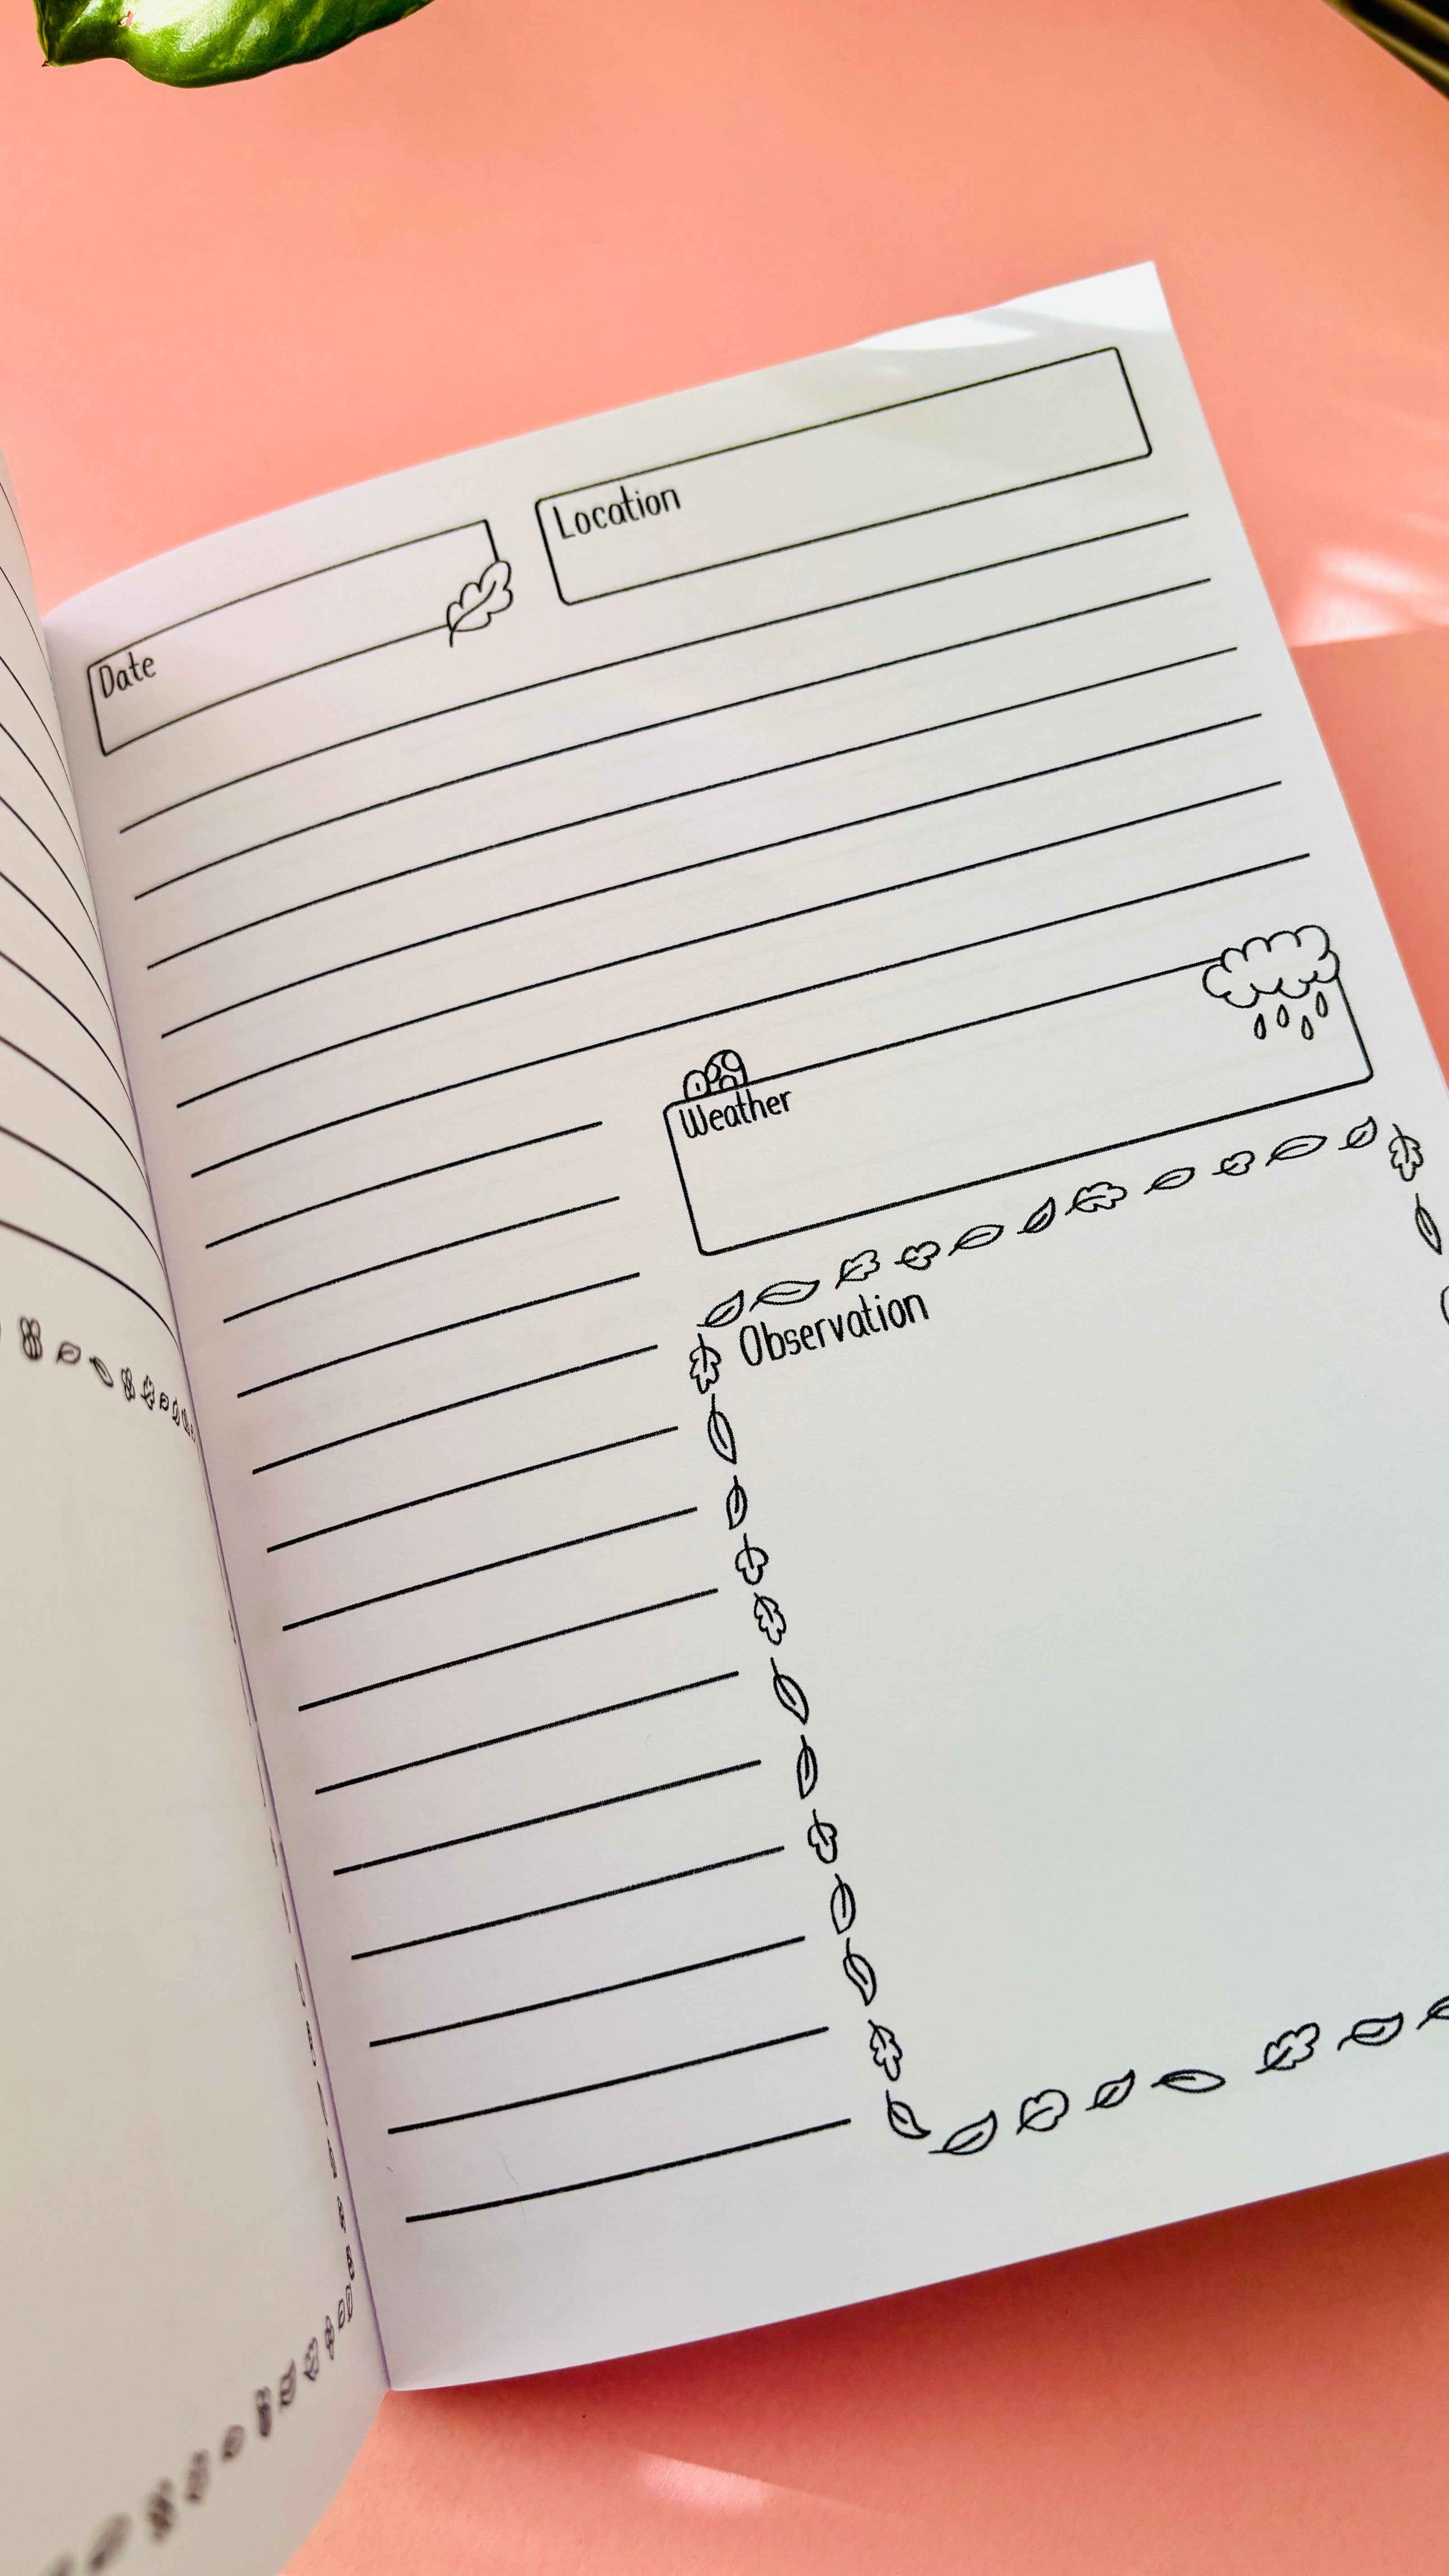 Date
Location
Weather
Observation